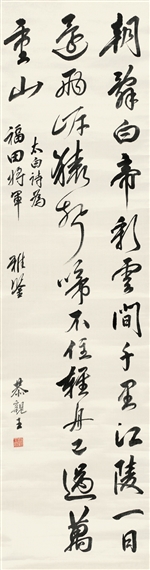 朝辭白帝彩雲間千里江陵一日
還兩岸猿聲啼不住輕舟已過萬
重山
太白詩為
福田將軍 雅鑒
恭親王